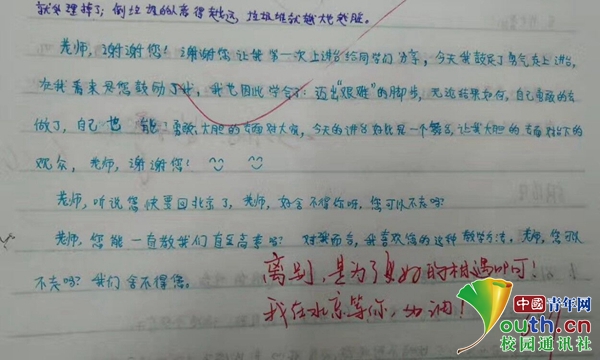 就处理掉了；倒垃圾的从离得越远，垃圾堆就越大越脏。
老师，谢谢您！谢谢您让我第一次上讲台给同学们分享，今天我鼓足了勇气走上讲台，
在我看来是您鼓励了我，我也因此学会了：迈出“艰难”的脚步，无论结果如何，自己勇敢的去
做了，自己也能了勇敢大胆的去面对大家，今天的讲台好比是一个舞台，让我大胆的去面对台下的
观众，老师，谢谢您！
老师，听说您快要回北京了，老师，好舍不得你呀，您可以不走吗？
老师，您能一直教我们直至高考吗？对我而言，我喜欢您的这种教学方法。老师，您可以
不走吗？我们舍不得您。
离别，是为了更好的相遇
我在北京等你，加油！
中国青年网
youth.cn
校园通讯社